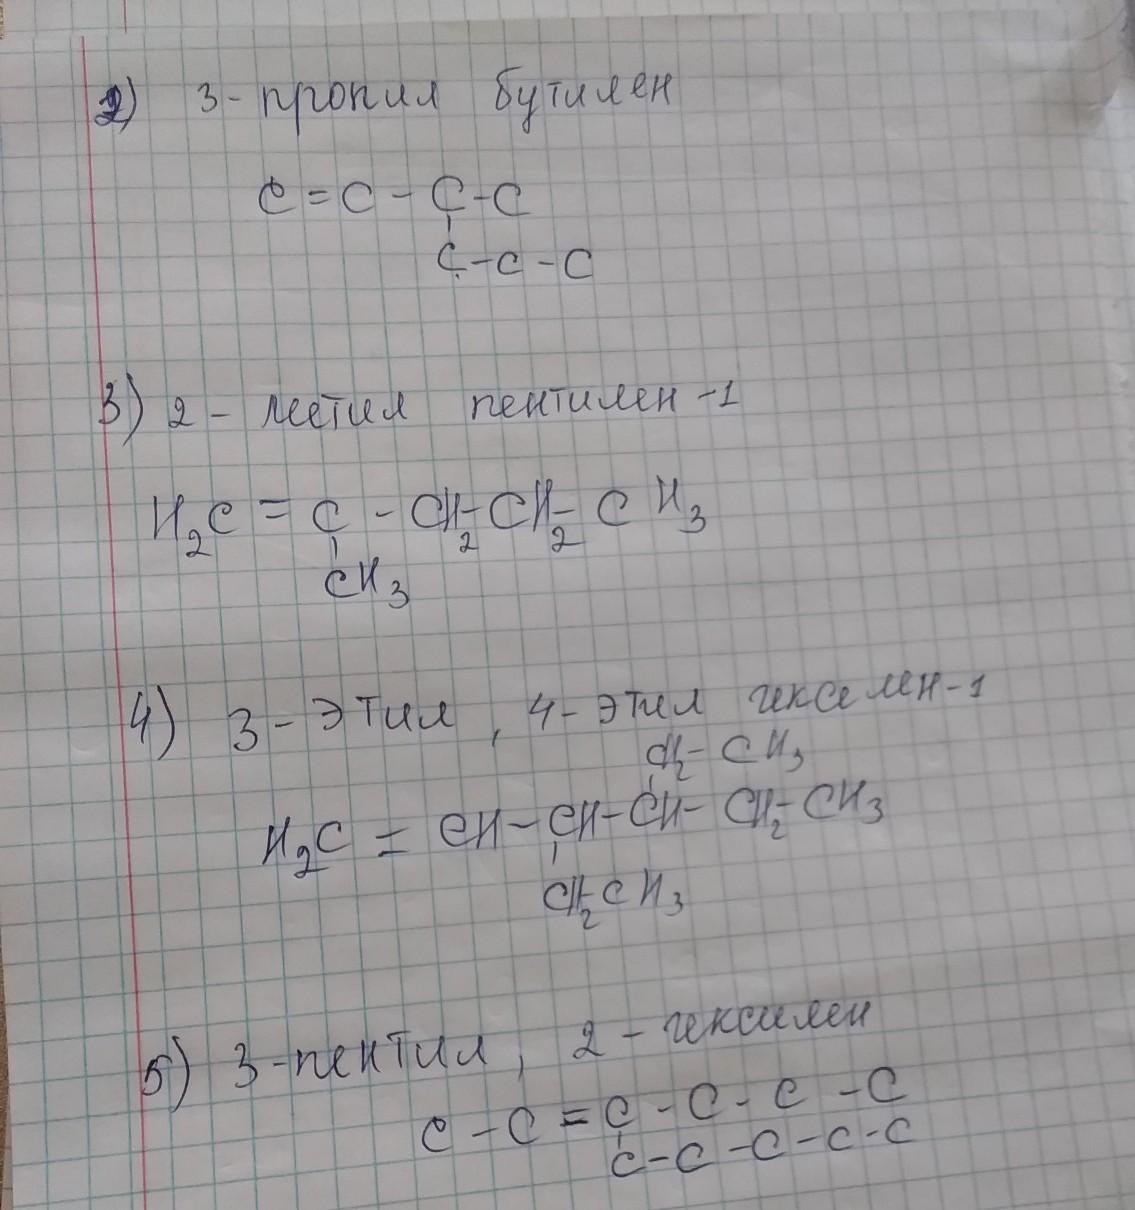 2) 3-пропил бутилен
C = C - C - C
C - C - C
3) 2 - метил пентилен -1
H₂C = C - CH₂ - CH₂ - CH₃
CH₃
4) 3 - этил, 4 - этил гекселен-1
CH₂ - CH₃
H₂C = CH - CH - CH - CH₂ - CH₃
CH₂ CH₃
5) 3-пентил, 2 - гексилен
C - C = C - C - C - C
C - C - C - C - C